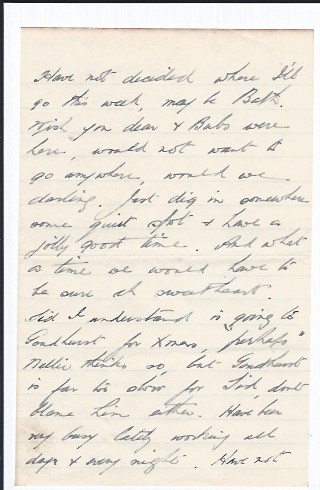 Have not decided where I'll
go this week, may be Bath.
Wish you dear & Babs were
here, would not want to
go anywhere, would we
darling. Just dig in somewhere
some quiet spot & have a
jolly good time. And what
a time we would have to
be sure eh sweetheart.
Sid I understand is going to
Goudhurst for Xmas, "perhaps"
Nellie thinks so, but Goudhurst
is far too slow for Sid, dont
blame him either. Have been
very busy lately working all
day & every night. Have not